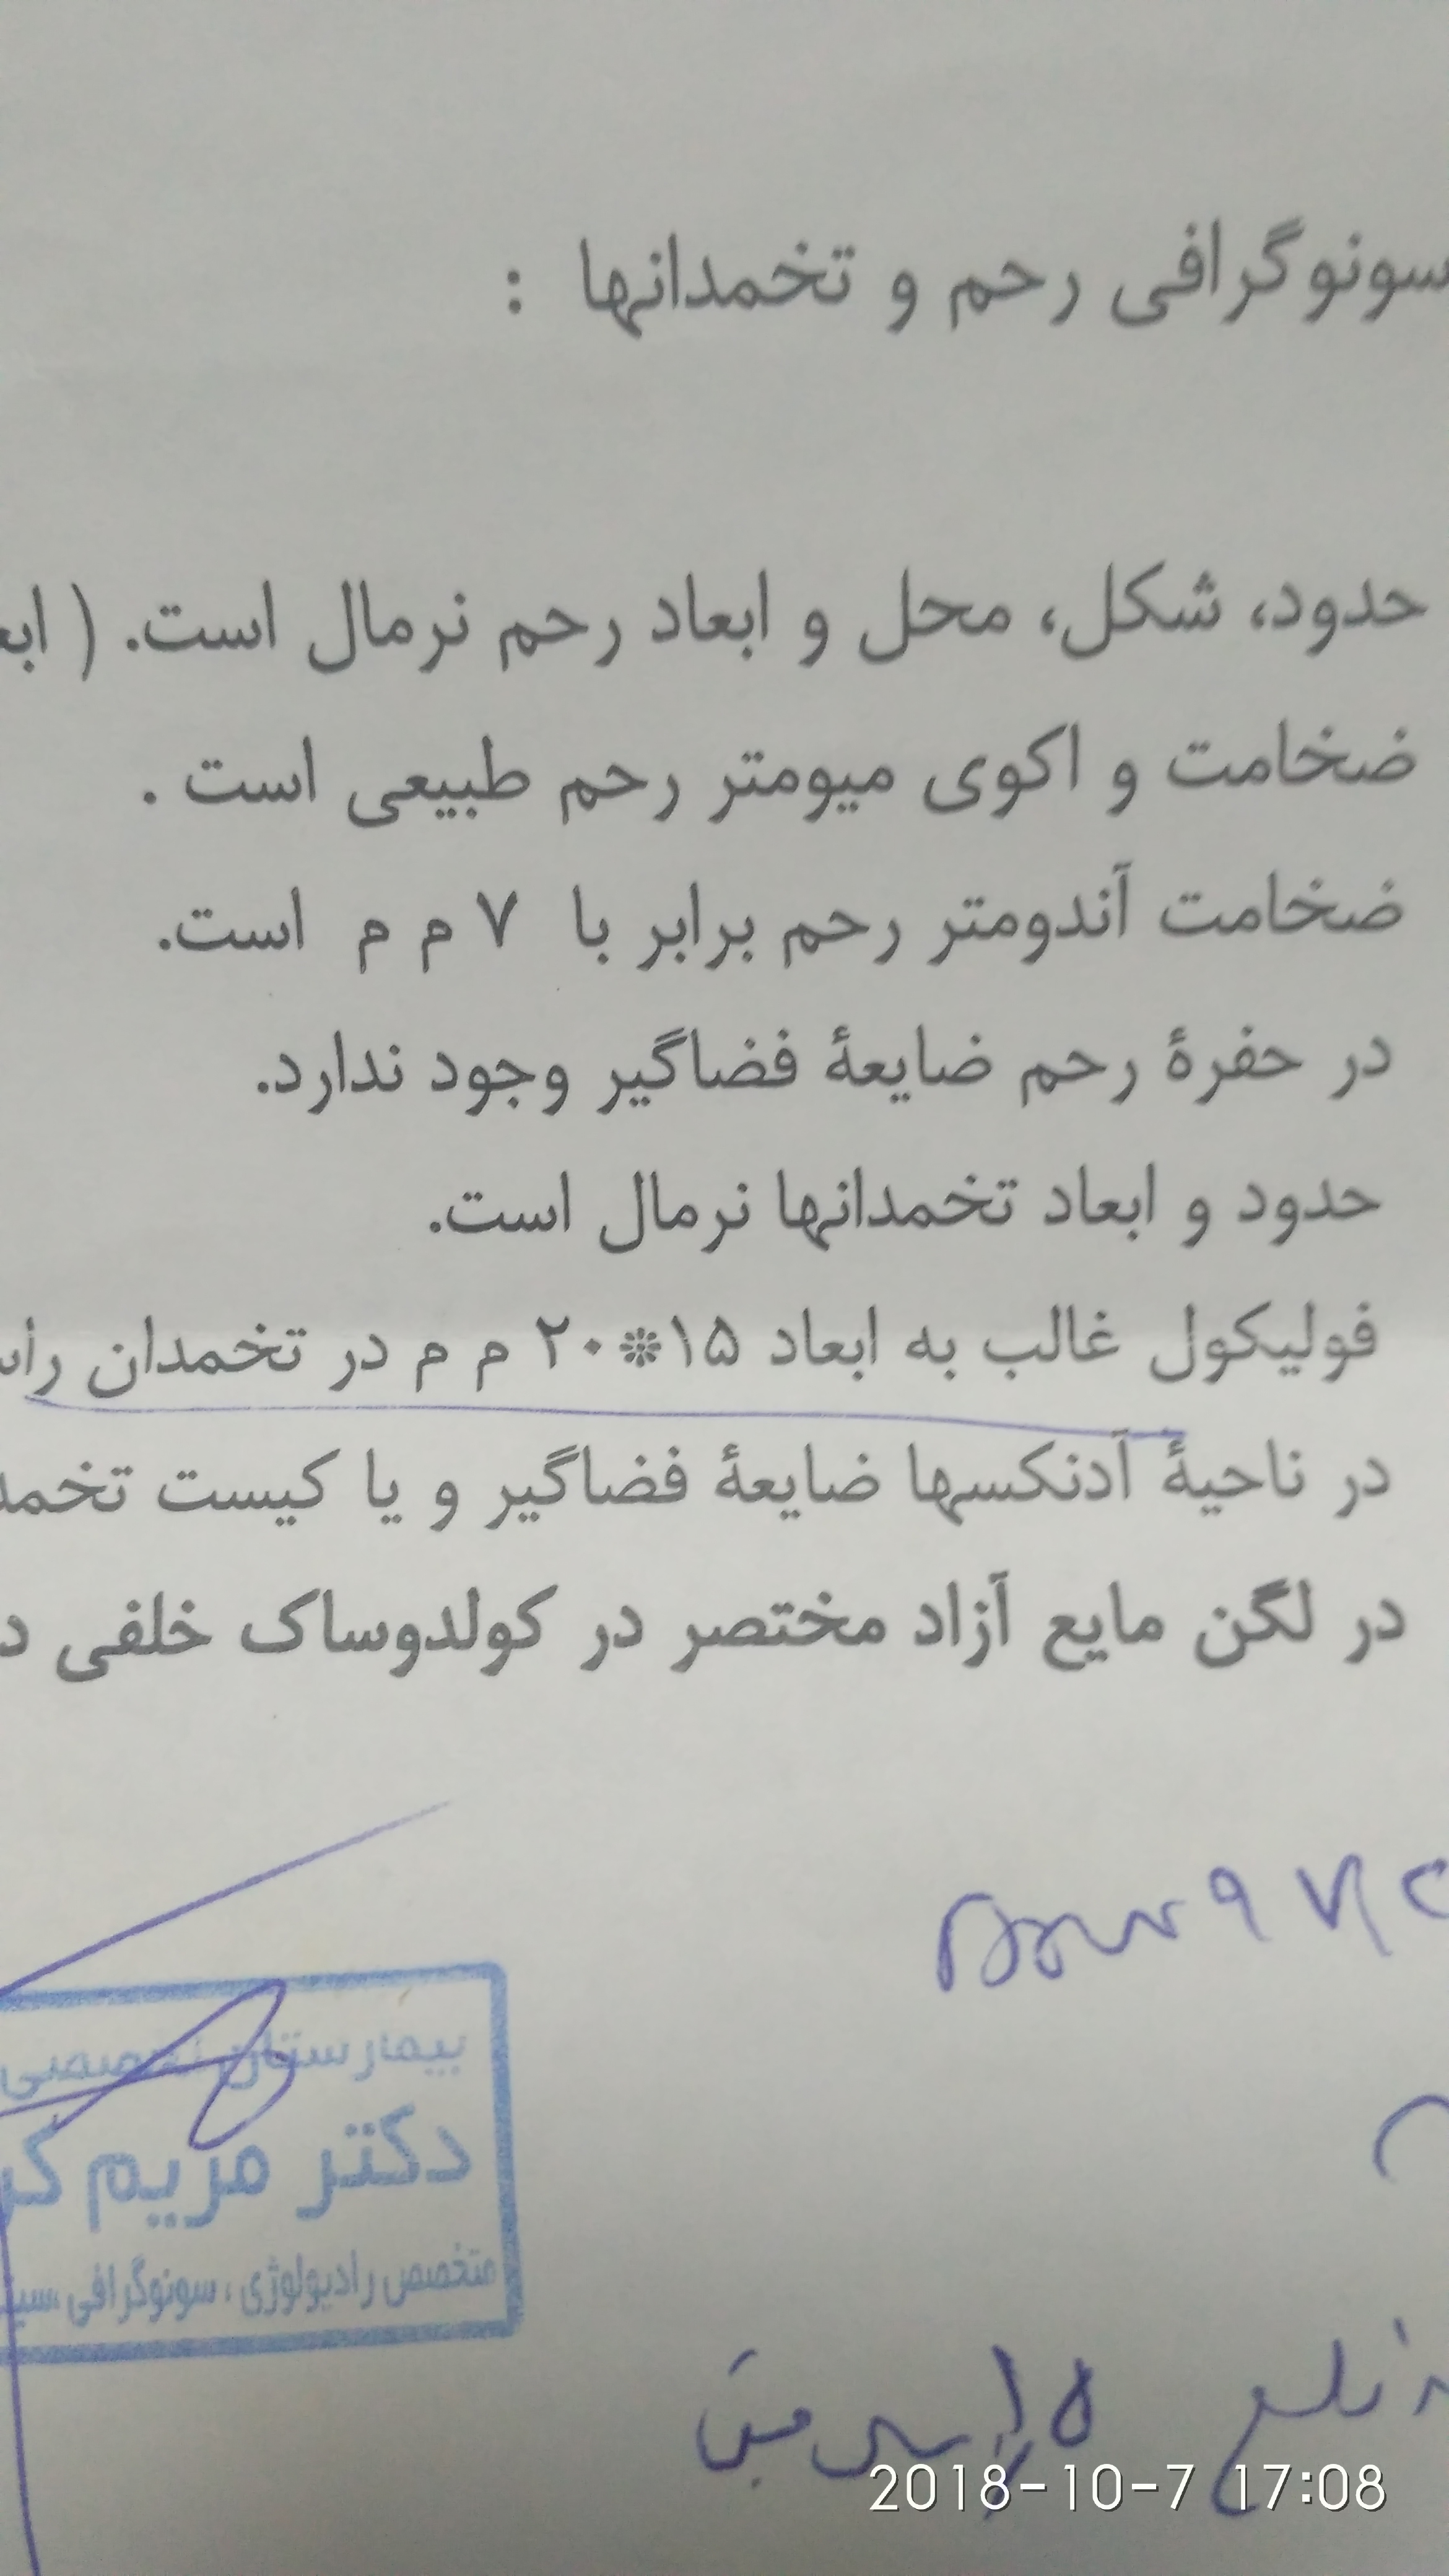 سونوگرافی رحم و تخمدانها :
حدود، شکل، محل و ابعاد رحم نرمال است. (
ضخامت و اکوی میومتر رحم طبیعی است .
ضخامت آندومتر رحم برابر با ۷ م م است.
در حفرهٔ رحم ضایعهٔ فضاگیر وجود ندارد.
حدود و ابعاد تخمدانها نرمال است.
فولیکول غالب به ابعاد ۱۵*۲۰ م م در تخمدان
در ناحیهٔ آدنکسها ضایعهٔ فضاگیر و یا کیست
در لگن مایع آزاد مختصر در کولدوساک خلفی
بیمارستان تخصصی
دکتر مریم
متخصص رادیولوژی، سونوگرافی
2018-10-7 17:08